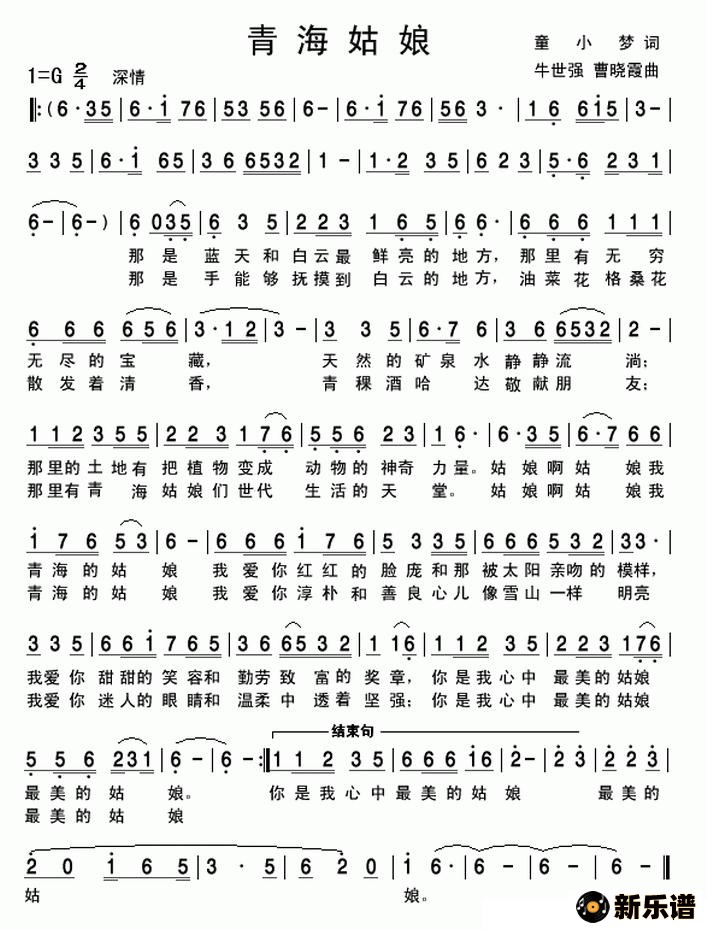 青海姑娘
童小梦词
1=G 2/4 深情 牛世强 曹晓霞曲
‖:(6·35|6·i 76|53 56|6-|6·i 76|56 3·|1 6 6i5|3-|
3 3 5|6·i 65|3 6 6532|1-|1·2 35|6 2 3|5·6 2 3 1|
6-|6-)|6 035|6 3 5|2 2 3 1 6 5|6 6·|6 6 6 1 1 1|
那是蓝天和白云最 鲜亮的地方,那里有无穷
那是手能够抚摸到 白云的地方,油菜花格桑花
6 6 6 6 5 6|3·1 2|3-|3 3 5|6·7 6|3 6 6532|2-|
无尽的宝 藏, 天然的矿泉水静静流 淌;
散发着清 香, 青稞酒哈 达敬献朋 友;
1 1 2 3 5 5|2 2 3 1 7 6|5 5 6 2 3|1 6·|6·3 5|6·7 6 6|
那里的土地有 把植物变成 动物的神奇 力量。姑娘啊姑 娘我
那里有青 海姑娘们世代 生活的天 堂。姑娘啊姑 娘我
i 7 6 5 3|6-|6 6 6 i 7 6|5 3 3 5|6 6 6 5 3 2|3 3·|
青海的姑 娘 我爱你红红的脸庞和那 被太阳亲吻的模样,
青海的姑 娘 我爱你淳朴和善良心儿 像雪山一样 明亮
3 3 5|6 6 i 7 6 5|3 6 6 5 3 5|1 1 6|1 1 2 3 5|2 2 3 1 7 6|
我爱你 甜甜的 笑容和 勤劳致 富的奖章,你是我心中 最美的姑娘
我爱你 迷人的 眼睛和 温柔中 透着坚强;你是我心中 最美的姑娘
结束句
5 5 6 2 3 1|6-|6-:‖1 1 2 3 5|6 6 6 i 6|2-|2 3|
最美的姑 娘。 你是我心中最美的姑娘 最美的
最美的姑 娘
2 0 i 6 5|3·5|6 2 0|i 6·|6-|6-|6-‖
姑 娘。
新乐谱